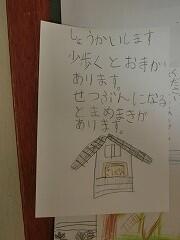 しょうかいします
少歩くとおまが
あります。
せつぶんになる
とまめまきが
あります。
ください